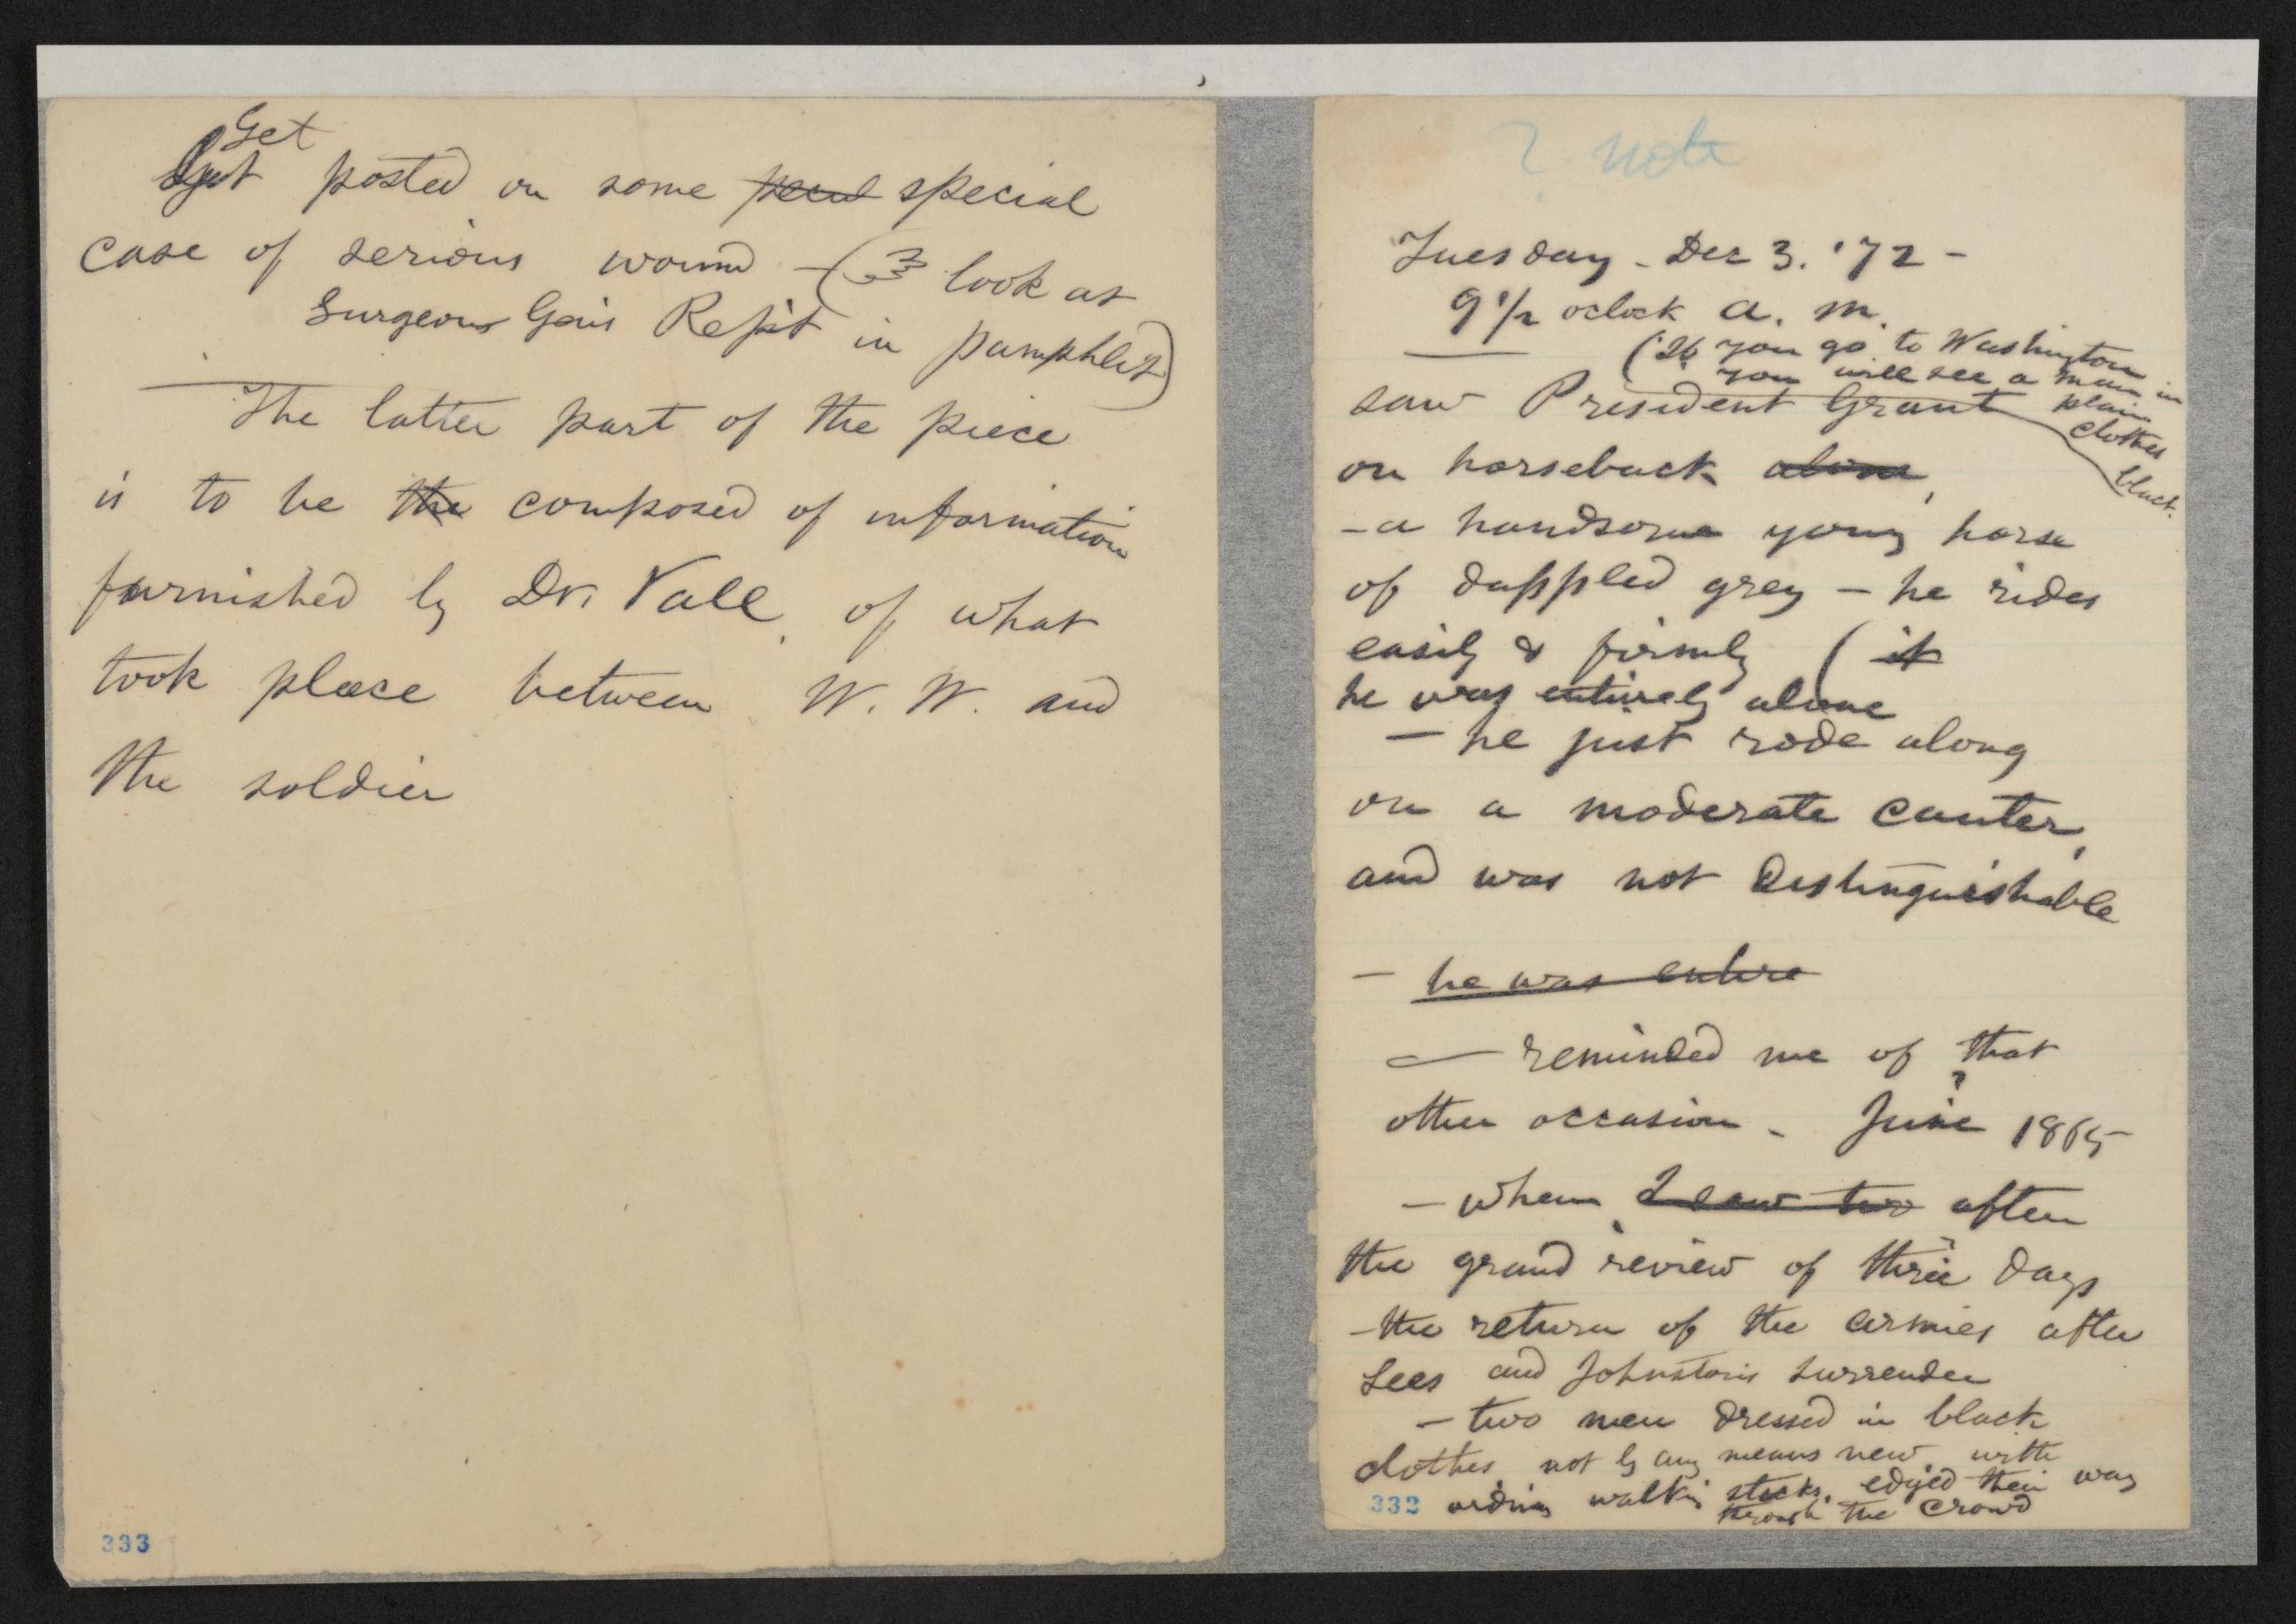 Get
Get posted on some pecul special
case of serious wound — (☞ look at
Surgeons Gen's Rep't in pamphlet)
The latter part of the piece
is to be the composed of information
furnished by Dr. Vall, of what
took place between W. W. and
the soldier
333
? note
Tuesday - Dec 3. '72 -
9 1/2 oclock a. m.
(If you go to Washington
you will see a man in
plain
clothes
black.
saw President Grant
on horseback alone,
- a handsome young horse
of dappled grey - he rides
easily & firmly (it
he was entirely alone
- he just rode along
on a moderate canter,
and was not distinguishable
- he was entire
— reminded me of that
?
other occasion - June 1865
- when I saw two after
?
the grand review of three days
- the return of the armies after
Lees and Johnston's surrender
- two men dressed in black
clothes, not by any means new, with
332 ordinary walking sticks, edged their way
through the crowd